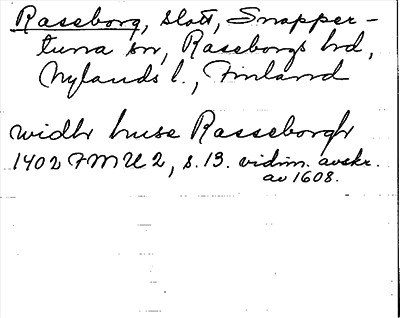 Raseborg, slott, Snapper-
tuna sn, Raseborgs hd,
Nylands l., Finland
widh huse Rasseborgh
1402 FMU 2, s. 13. vidim. avskr.
av 1608.